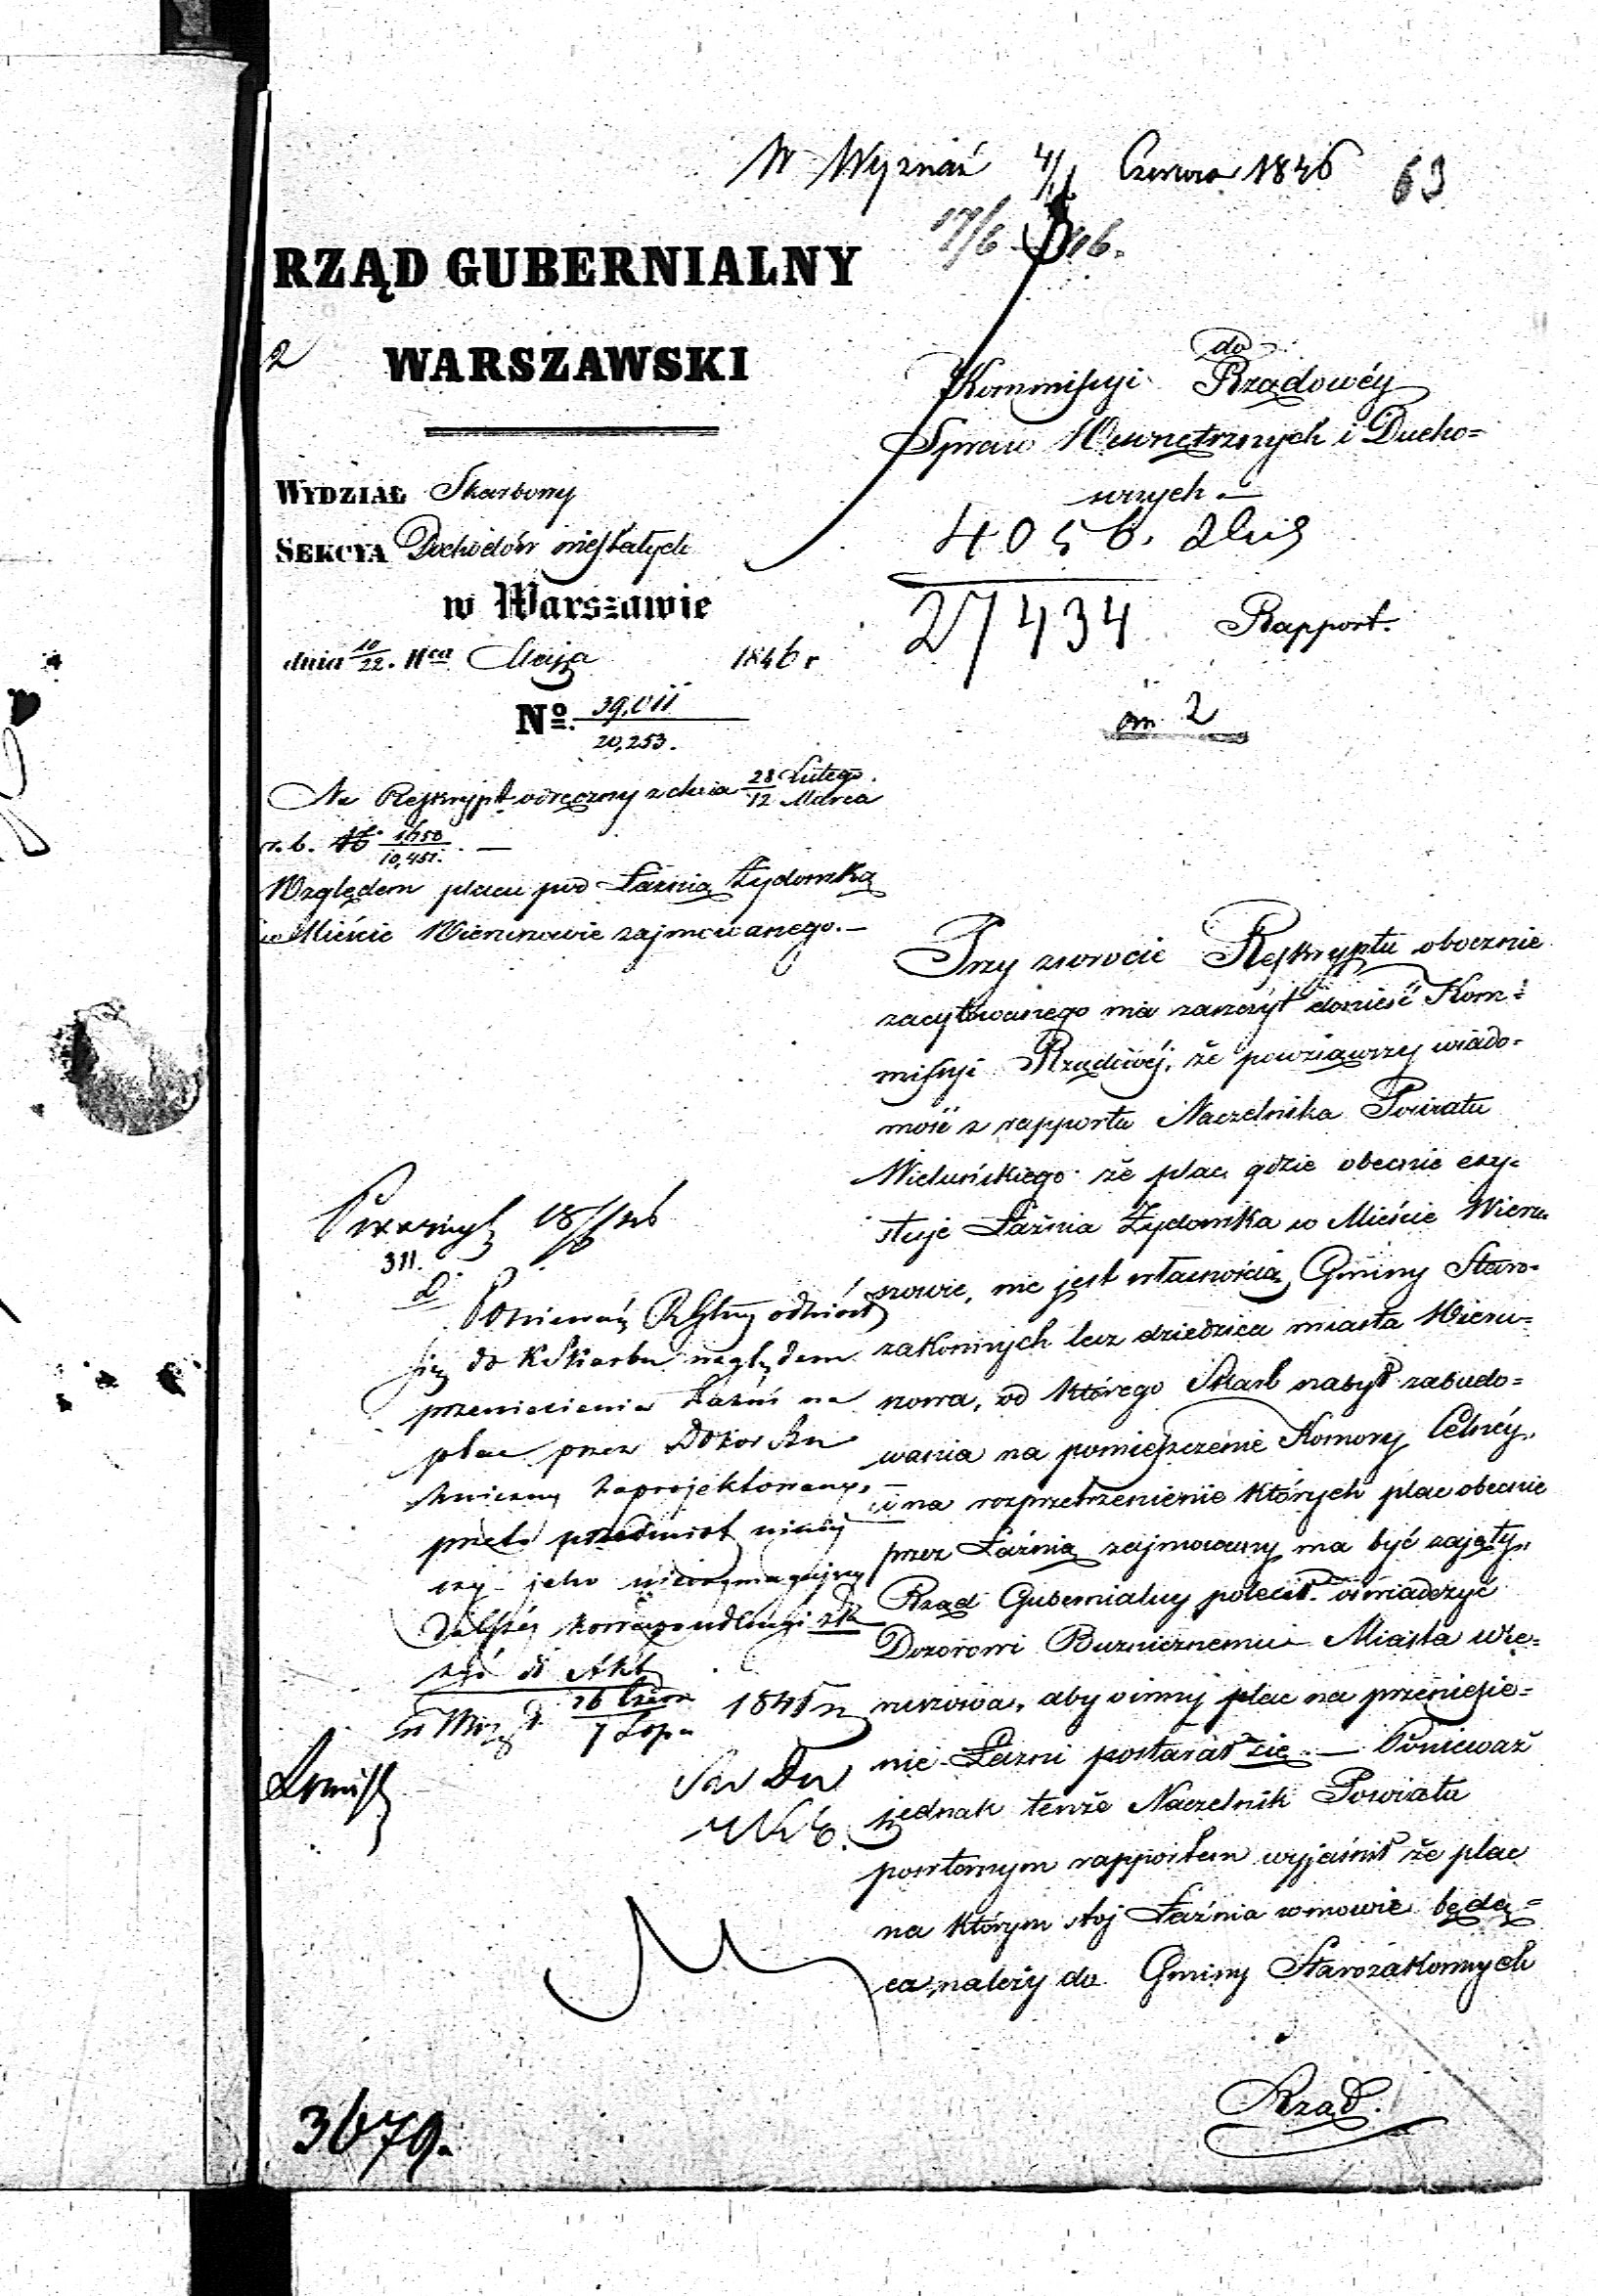 W Wyznań 4/ Czerwca 1846
63
17/6
RZĄD GUBERNIALNY
2
WARSZAWSKI
do
Kommissyi Rządowéy
Spraw Wewnętrznych i Ducho=
wnych.—
WYDZIAŁ Skarbowy
SEKCYA Dochodów niestałych
w Warszawie
dnia 10/22. Mca Maja 1846 r
4056.
27434
Rapport.
No. 39,011
20,253.
2
Na Reskrypt odręczny z dnia 28 Lutego
12 Marca
r. b. № 1650
10,451. —
Względem placu pod Łaźnią Żydowską
w Mieście Wieruszowie zajmowanego.—
Przy zwrocie Reskryptu obocznie
zacytowanego ma zaszczyt donieść Kom=
missyi Rządowéj, że powziąwszy wiado-
mość z rapportu Naczelnika Powiatu
Wieluńskiego że plac gdzie obecnie exy-
stuje Łaźnia Żydowska w Mieście Wieru-
szowie, nie jest własnością Gminy Staro-
zakonnych lecz dziedzica miasta Wieru-
szowa, od którego Skarb nabył zabudo=
wania na pomieszczenie Komory Celnéy,
i na rozprzetrzenienie których plac obecnie
przez Łaźnię zajmowany ma być zajęty,
Rząd Gubernialny polecił oświadczyć
Dozorowi Bużnicznemu Miasta Wie=
ruszowa, aby o inny plac na przeniesie=
nie Łaźni postarał się.— Ponieważ
jednak tenże Naczelnik Powiatu
powtórnym rapportem wyjaśnił że plac
na którym stoj Łaźnia w mowie będą=
ca, należy do Gminy Starozakonnych
Rząd.
18/6
311.
Ponieważ odniósł
się do K Skarbu względem
przeniesienia Łaźni na
plac przez Dozór Bu
żniczny zaprojektowany,
przeto przedmiot niniéj
szy jako niewymagający
dalszéj korrespondencyi
do Akt
26 Czerw
7 Lipca
184
3679.